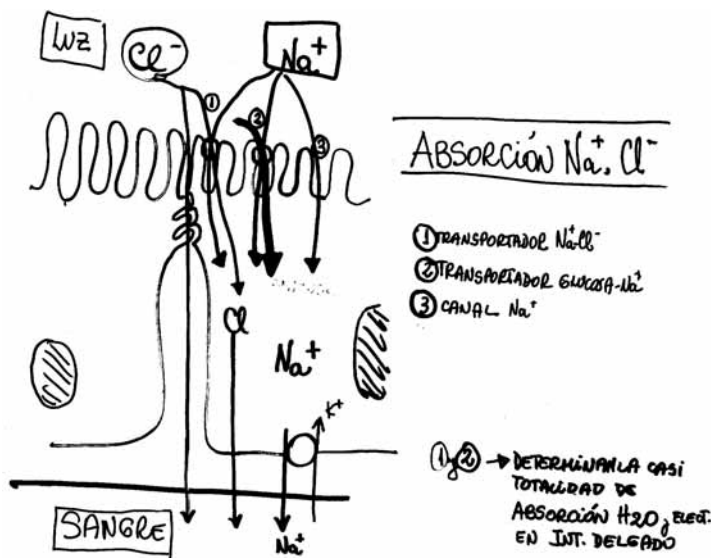 LUZ
Cl⁻
Na⁺
①
②
③
ABSORCIÓN Na⁺, Cl⁻
① TRANSPORTADOR Na⁺Cl⁻
② TRANSPORTADOR GLUCOSA-Na⁺
③ CANAL Na⁺
Cl
Na⁺
K⁺
① y ② → DETERMINAN LA CASI
TOTALIDAD DE
ABSORCIÓN H2O y ELECT.
EN INT. DELGADO
SANGRE
Na⁺